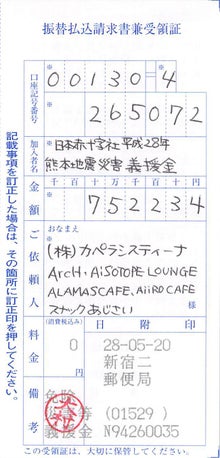 振替払込請求書兼受領証
口座記号番号
00130-4
265072
加入者名
日本赤十字社平成28年
熊本地震災害義援金
金額
千百十万千百十円
752234
ご依頼人
おなまえ
(株)カペラシスティーナ
ArcH, AiSOTOPE LOUNGE
ALAMASCAFE, AiiRO CAFE
スナックあじさい
様
料金
(消費税込み)
0
円
日附印
28-05-20
新宿二
郵便局
備考
免除
(01529)
義援金 N94260035
記載事項を訂正した場合は、その箇所に訂正印を押してください。
この受領証は、大切に保管してください。